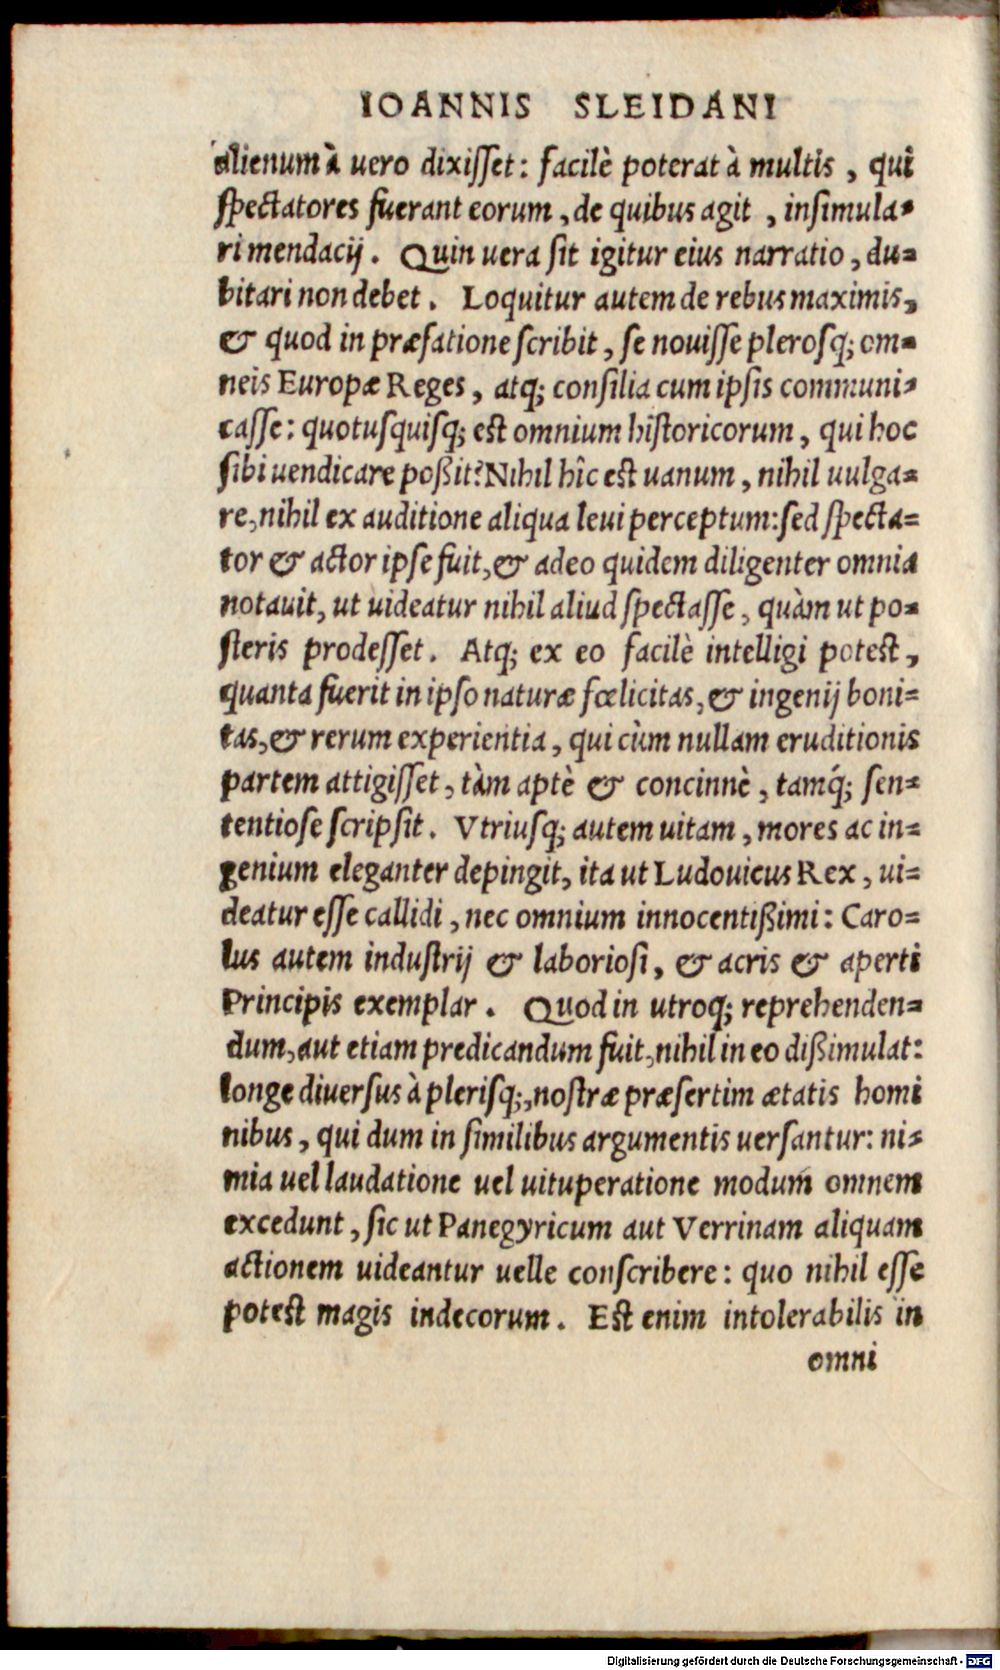 IOANNIS SLEIDANI
alienum à uero dixisset: facilè poterat à multis, qui
spectatores fuerant eorum, de quibus agit, insimula-
ri mendacij. Quin uera sit igitur eius narratio, du-
bitari non debet. Loquitur autem de rebus maximis,
& quod in præfatione scribit, se nouisse plerosq; om-
neis Europæ Reges, atq; consilia cum ipsis communi-
casse: quotusquisq; est omnium historicorum, qui hoc
sibi uendicare poßit? Nihil hîc est uanum, nihil uulga-
re, nihil ex auditione aliqua leui perceptum: sed specta-
tor & actor ipse fuit, & adeo quidem diligenter omnia
notauit, ut uideatur nihil aliud spectasse, quàm ut po-
steris prodesset. Atq; ex eo facilè intelligi potest,
quanta fuerit in ipso naturæ fœlicitas, & ingenij boni-
tas, & rerum experientia, qui cùm nullam eruditionis
partem attigisset, tàm aptè & concinnè, tamq́; sen-
tentiose scripsit. Vtriusq; autem uitam, mores ac in-
genium eleganter depingit, ita ut Ludouicus Rex, ui-
deatur esse callidi, nec omnium innocentißimi: Caro-
lus autem industrij & laboriosi, & acris & aperti
Principis exemplar. Quod in utroq; reprehenden-
dum, aut etiam predicandum fuit, nihil in eo dißimulat:
longe diuersus à plerisq;, nostræ præsertim ætatis homi
nibus, qui dum in similibus argumentis uersantur: ni-
mia uel laudatione uel uituperatione modum omnem
excedunt, sic ut Panegyricum aut Verrinam aliquam
actionem uideantur uelle conscribere: quo nihil esse
potest magis indecorum. Est enim intolerabilis in
omni
Digitalisierung gefördert durch die Deutsche Forschungsgemeinschaft - DFG